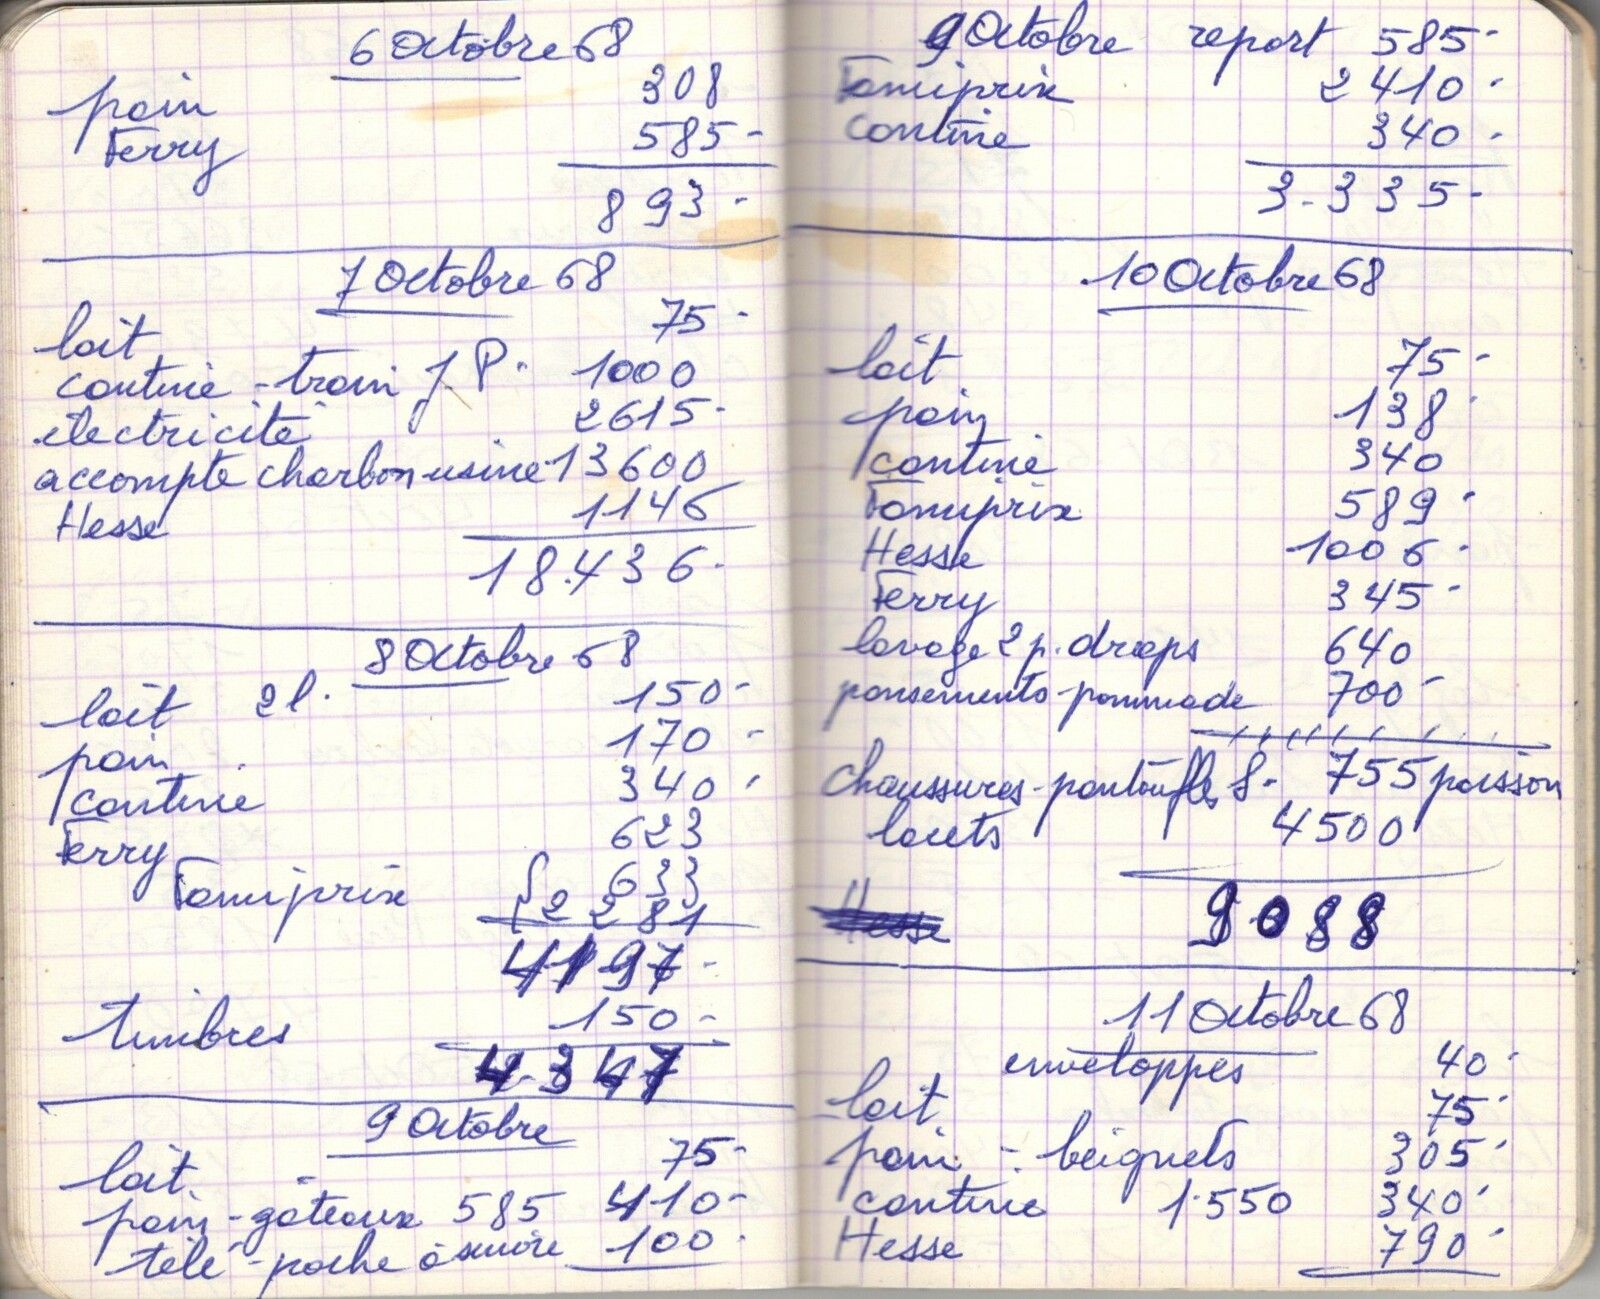 6 Octobre 68
pain 308
Ferry 585-
893-
7 Octobre 68
lait 75-
cantine - train J.P. 1000
électricité 2615-
accompte charbon usine 13600
Hesse 1146
18.436-
8 Octobre 68
lait 2 l. 150-
pain 170-
cantine 340-
Ferry 623
Famiprix 633
2281
4197-
timbres 150-
4.347
9 Octobre
lait 75-
pain - gâteaux 585 410-
télé-poche 100-
9 Octobre report 585-
Famiprix 2410-
cantine 340-
3.335-
10 Octobre 68
lait 75-
pain 138-
cantine 340
Famiprix 589-
Hesse 1006-
Ferry 345-
lavage 2 p. draps 640
pansements-pommade 700-
chaussures-pantoufles S. 755 poisson
lacets 4500
Hesse 9088
11 Octobre 68
enveloppes 40-
lait 75-
pain - beignets 305-
cantine 1.550 340-
Hesse 790-